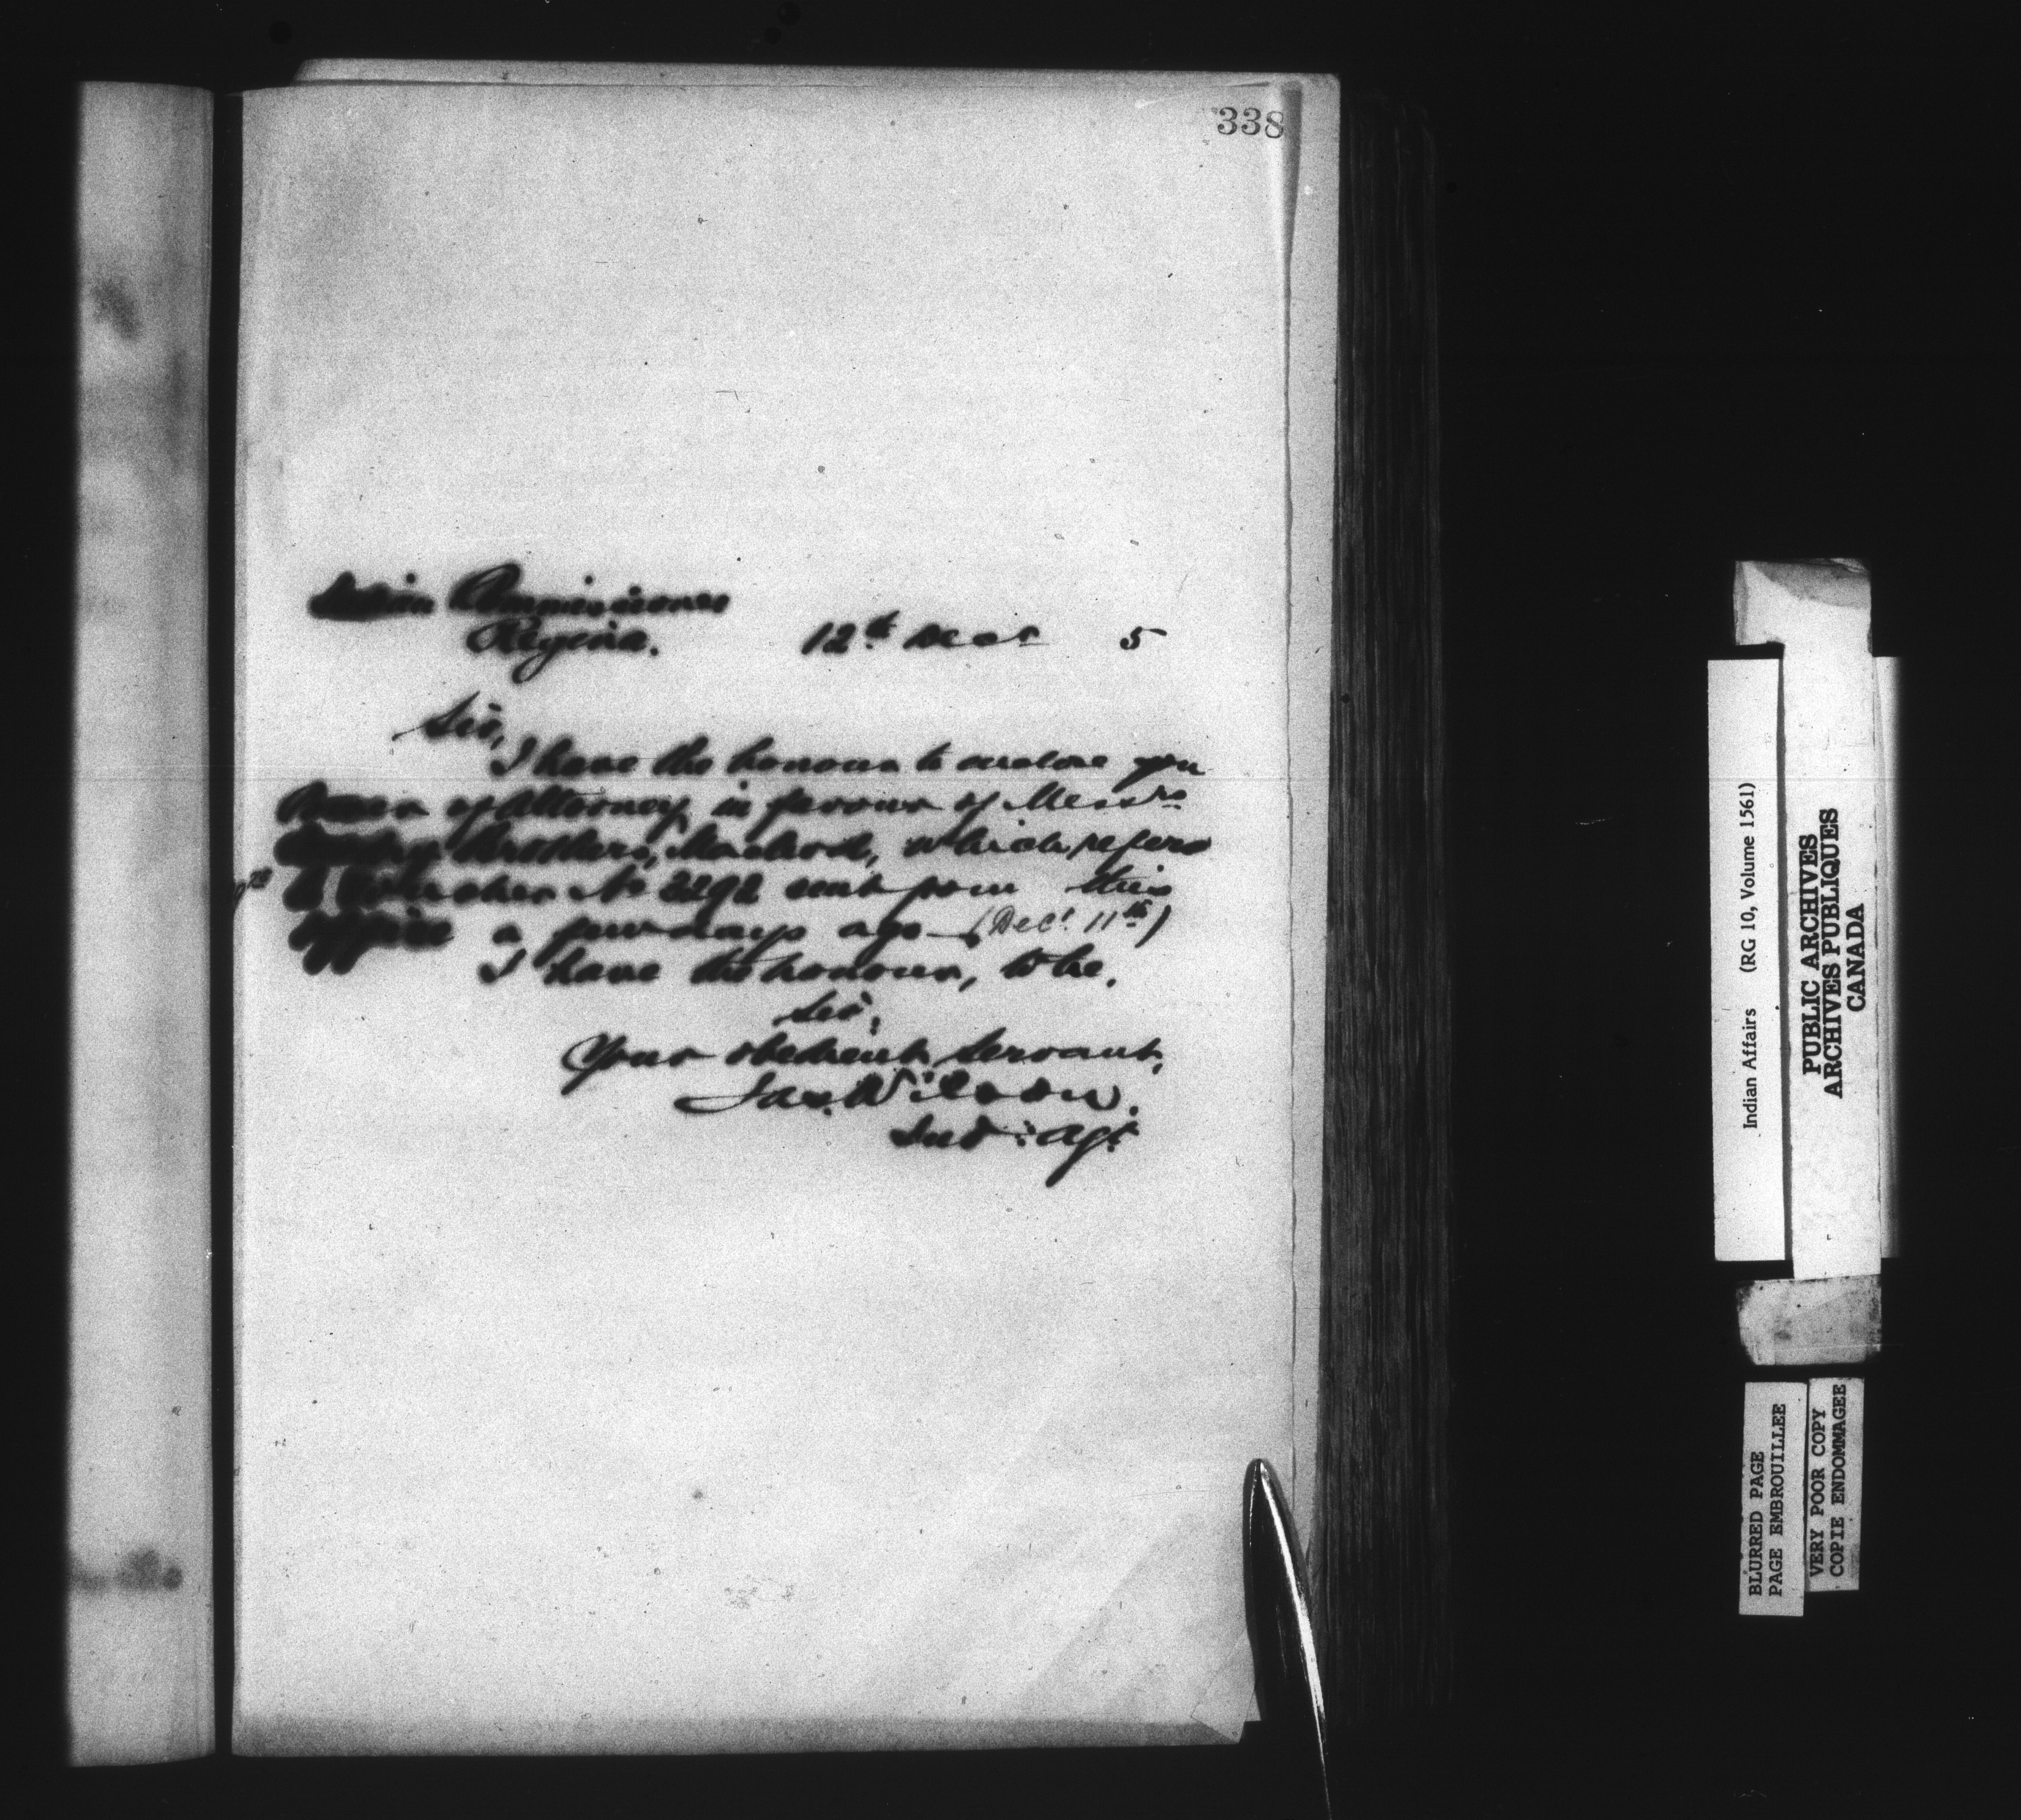 338
Indian Commissioner
Regina. 12th Decr 5
Sir,
I have the honour to enclose you
Power of Attorney in favour of Messrs
Brothers, Macleod, which refers
to Voucher No 2292 sent from this
Office a few days ago (Decr 11th)
I have the honour, to be.
Sir,
Your obedient Servant,
Jas. Wilson.
Ind: Agt
Indian Affairs (RG 10, Volume 1561)
PUBLIC ARCHIVES
ARCHIVES PUBLIQUES
CANADA
BLURRED PAGE
PAGE EMBROUILLEE
VERY POOR COPY
COPIE ENDOMMAGEE